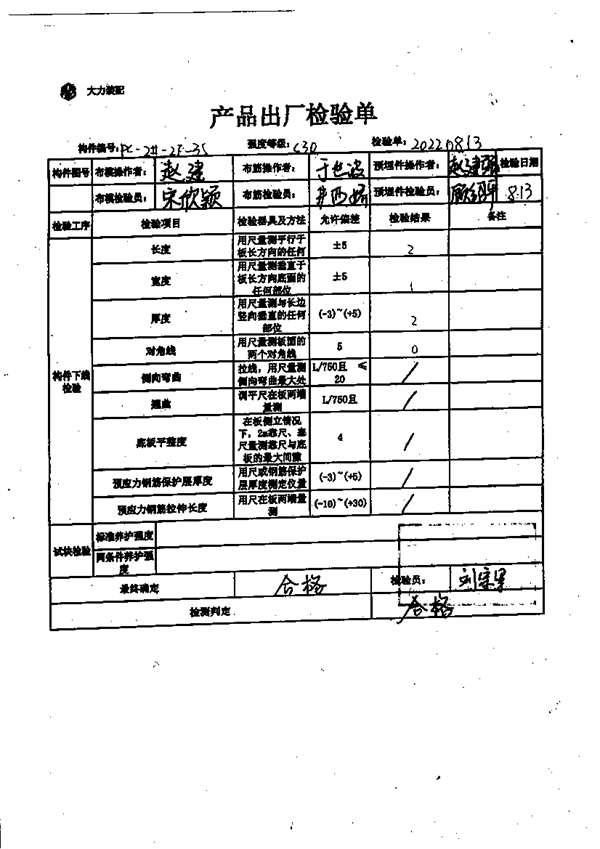 大力装配
产品出厂检验单
构件编号: PC-2#-2F-35 强度等级: C30 检验单: 20220813
构件图号 布模操作者: 赵建 布筋操作者: 预埋件操作者: 检验日期
布模检验员: 宋欣颖 布筋检验员: 预埋件检验员: 8.13
检验工序 检验项目 检验器具及方法 允许偏差 检验结果 备注
构件下线检验
长度 用尺量测平行于板长方向的任何 ±5 2
宽度 用尺量测垂直于板长方向底面的任何部位 ±5 1
厚度 用尺量测与长边竖向垂直的任何部位 (-3)~(+5) 2
对角线 用尺量测板面的两个对角线 5 0
侧向弯曲 拉线，用尺量测侧向弯曲最大处 L/750且 ≤20 /
翘曲 调平尺在板两端量测 L/750且 /
底板平整度 在板侧立情况下，2m靠尺、塞尺量测靠尺与底板的最大间隙 4 /
预应力钢筋保护层厚度 用尺或钢筋保护层厚度测定仪量 (-3)~(+5) /
预应力钢筋拉伸长度 用尺在板两端量测 (-10)~(+30) /
试块检验 标准养护强度
同条件养护强度
最终确定 合格 检验员:
检测判定 合格